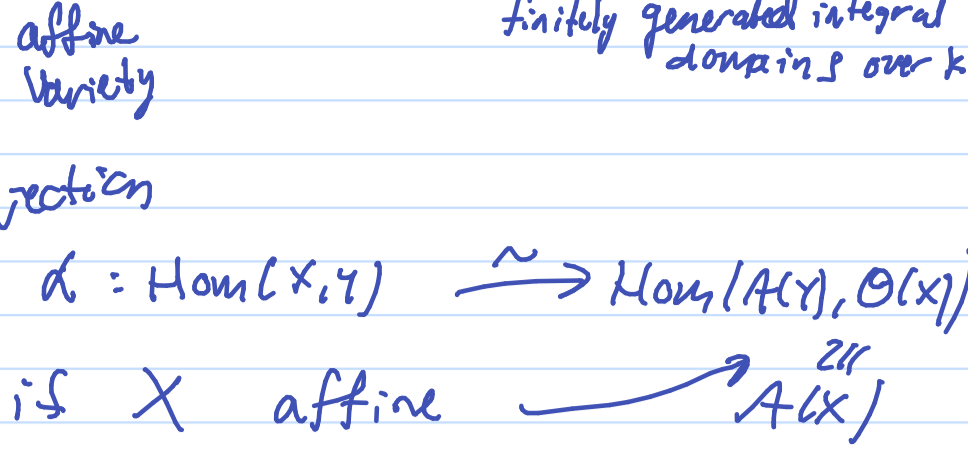 affine finitely generated integral
variety domains over k
jection
α : Hom(X,Y) ⥲ Hom(A(Y), O(X))
≅
if X affine → A(X)